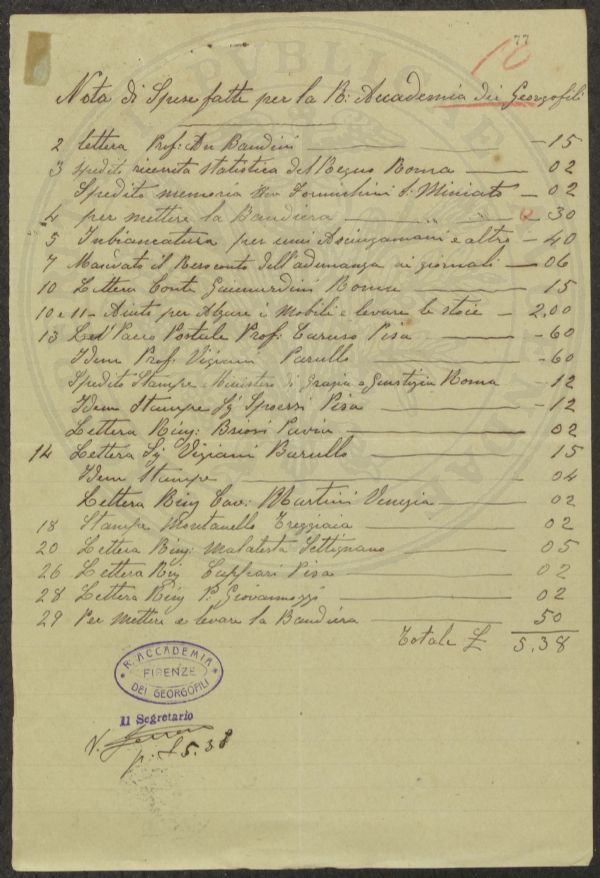 77
10
Nota di Spese fatte per la R: Accademia dei Georgofili
2 lettera Prof: Bandini — 15
3 Spedito ricevuta statistica del Regno Roma — 02
Spedito memoria S: Miniato — 02
4 per mettere la Bandiera — 30
5 Inbiancatura per Asciugamani e altro — 40
7 Mandato il Resoconto dell'adunanza ai giornali — 06
10 Lettera Conte Roma — 15
10 e 11 Aiuto per Alzare i Mobili e levare le stoie — 2,00
13 Pacco Postale Prof: Caruso Pisa — 60
Idem Prof: Vigiani — 60
Spedito Stampe Ministero di Grazia e Giustizia Roma — 12
Idem Stampe Sg Pisa — 12
Lettera Ring: Briosi Pavia — 02
14 Lettera Sg Vigiani — 15
Idem Stampe — 04
Lettera Ring Cav: Martini Venezia — 02
18 Stampe Montanello Treggiaia — 02
20 Lettera Ring: Malatesta Settignano — 05
26 Lettera Ring Pisa — 02
28 Lettera Ring P. Giovannozzi — 02
29 Per Mettere e levare la Bandiera — 50
Totale £ 5,38
R. ACCADEMIA
FIRENZE
DEI GEORGOFILI
Il Segretario
V.
p. £ 5.38